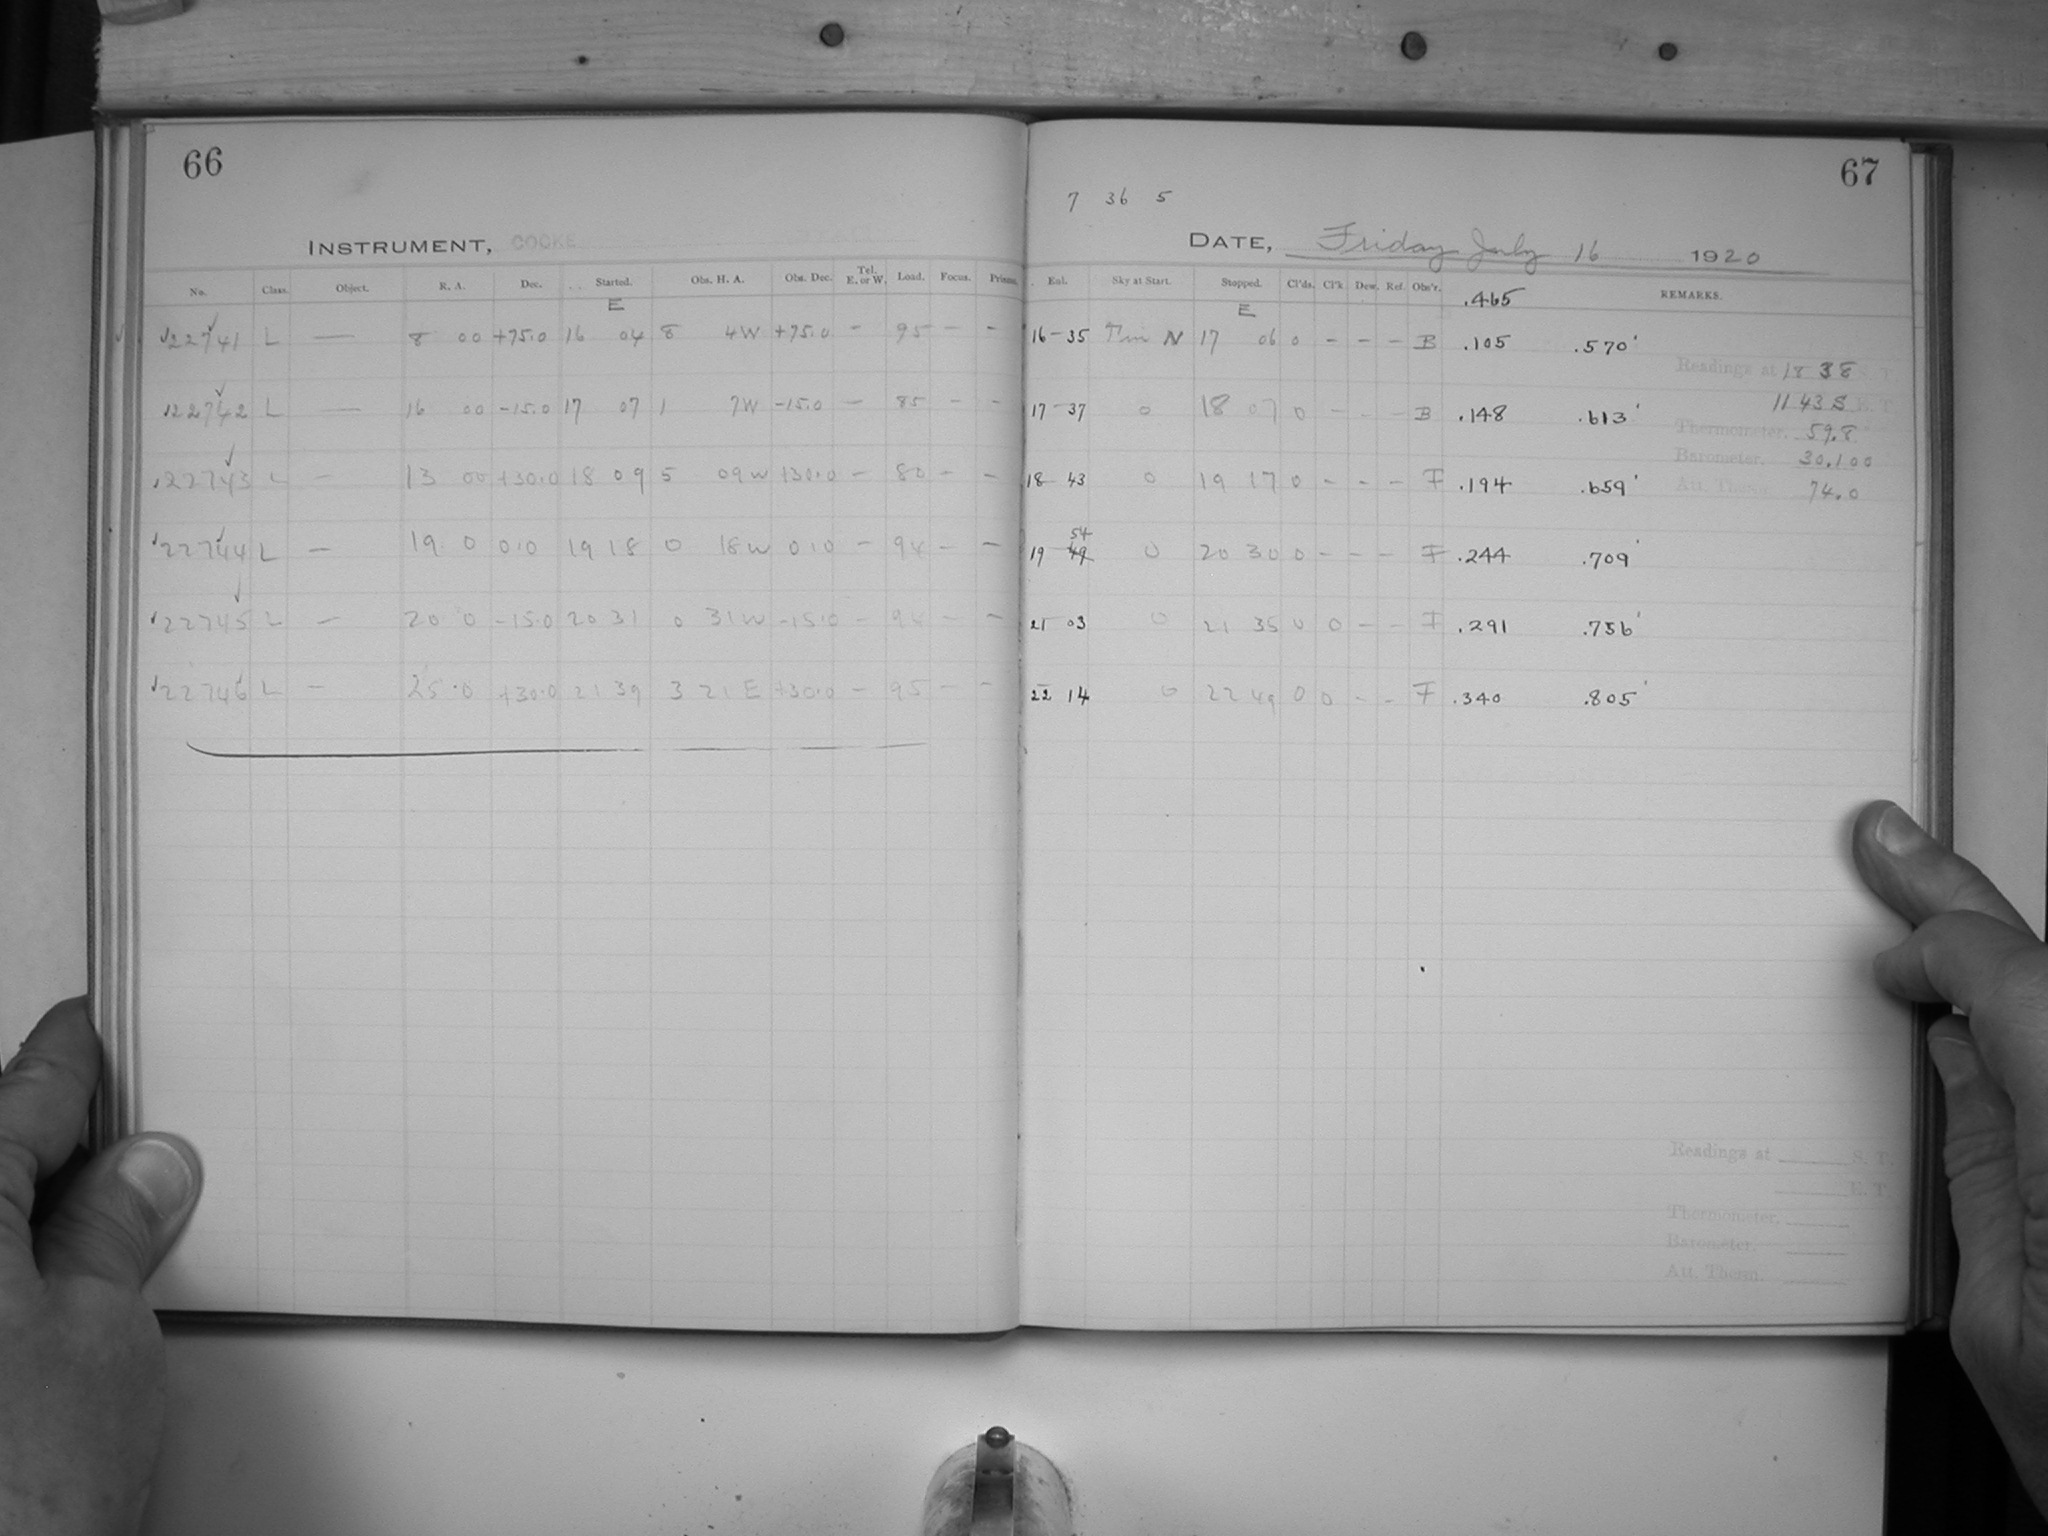 66
INSTRUMENT, COOKE
No. Class. Object. R. A. Dec. Started. Obs. H. A. Obs. Dec. Tel. E. or W. Load. Focus. Prisms.
E
22741 L — 8 00 +75.0 16 04 8 4W +75.0 - 95 - -
22742 L — 16 00 -15.0 17 07 1 7W -15.0 - 85 - -
22743 L — 13 00 +30.0 18 09 5 09W +30.0 - 80 - -
22744 L — 19 0 0.0 19 18 0 18W 0.0 - 94 - -
22745 L — 20 0 -15.0 20 31 0 31W -15.0 - 94 - -
22746 L — 25.0 +30.0 21 39 3 21 E +30.0 - 95 - -
67
7 36 5
DATE, Friday July 16 1920
Eul. Sky at Start. Stopped. Cl'ds. Cl'k Dew. Ref. Obs'r. .465 REMARKS.
E
16-35 N 17 06 0 - - - B .105 .570'
Readings at 18 38 S. T.
11 43 S E. T.
17-37 0 18 07 0 - - - B .148 .613'
Thermometer, 59.8
Barometer, 30.100
18 43 0 19 17 0 - - - F .194 .659'
Att. Therm. 74.0
54
19 49 0 20 30 0 - - - F .244 .709'
21 03 0 21 35 0 0 - - F .291 .756'
22 14 0 22 49 0 0 - - F .340 .805'
Readings at S. T.
E. T.
Thermometer,
Barometer,
Att. Therm.